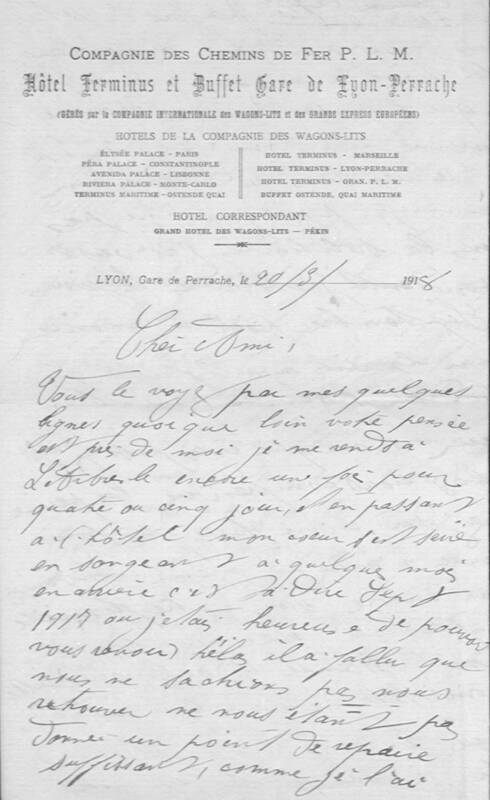 COMPAGNIE DES CHEMINS DE FER P. L. M.
Hôtel Terminus et Buffet Gare de Lyon-Perrache
(GÉRÉS par la COMPAGNIE INTERNATIONALE des WAGONS-LITS et des GRANDS EXPRESS EUROPÉENS)
HOTELS DE LA COMPAGNIE DES WAGONS-LITS
ÉLYSÉE PALACE - PARIS
PÉRA PALACE - CONSTANTINOPLE
AVENIDA PALACE - LISBONNE
RIVIERA PALACE - MONTE-CARLO
TERMINUS MARITIME - OSTENDE QUAI
HOTEL TERMINUS - MARSEILLE
HOTEL TERMINUS - LYON-PERRACHE
HOTEL TERMINUS - ORAN. P. L. M.
BUFFET OSTENDE, QUAI MARITIME
HOTEL CORRESPONDANT
GRAND HOTEL DES WAGONS-LITS — PÉKIN
LYON, Gare de Perrache, le 20/3/ 1918
Cher Ami,
Vous le voyez par mes quelques
lignes quoique loin votre pensée
est près de moi je me rends à
L'Arbresle encore une fois pour
quatre ou cinq jours, et en passant
à l'hôtel mon coeur s'est serré
en songeant à quelque mois
en arrière c'est à dire Sept
1917 ou j'étais heureuse de pouvoir
vous revoir) hélas il a fallu que
nous ne sachions pas nous
retrouver ne nous étant pas
donner un point de repaire
suffissant, comme je l'ai